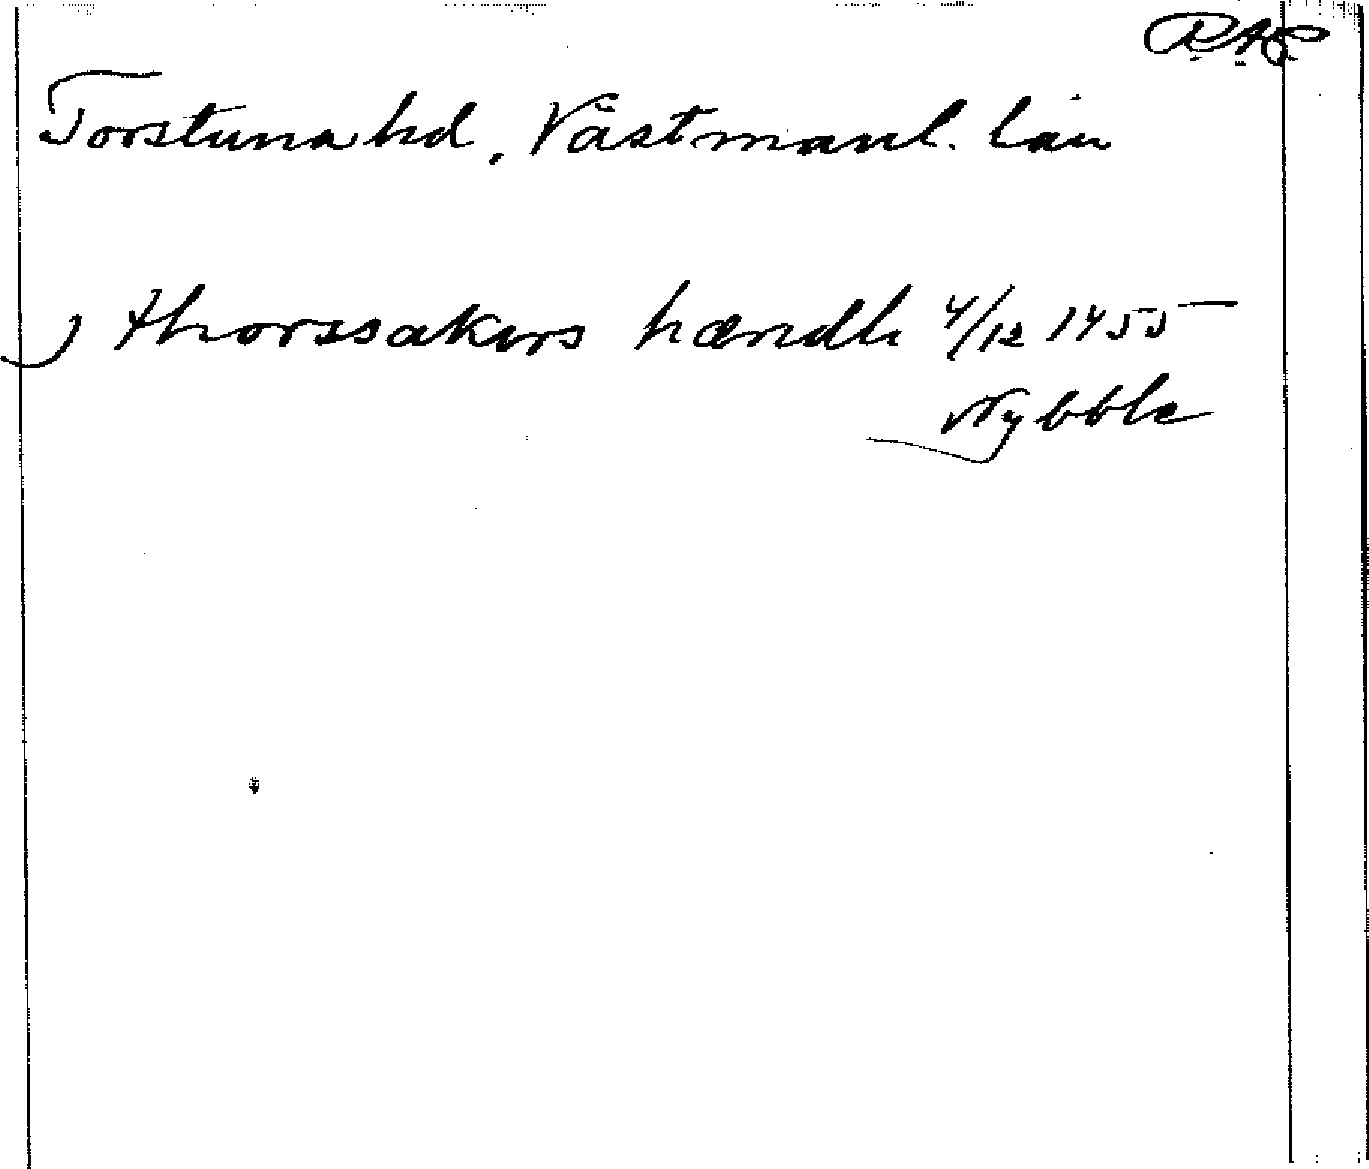 RAP
Torstuna hd, Västmanl. län
thorssakers hændh 4/12 1455
Nybble